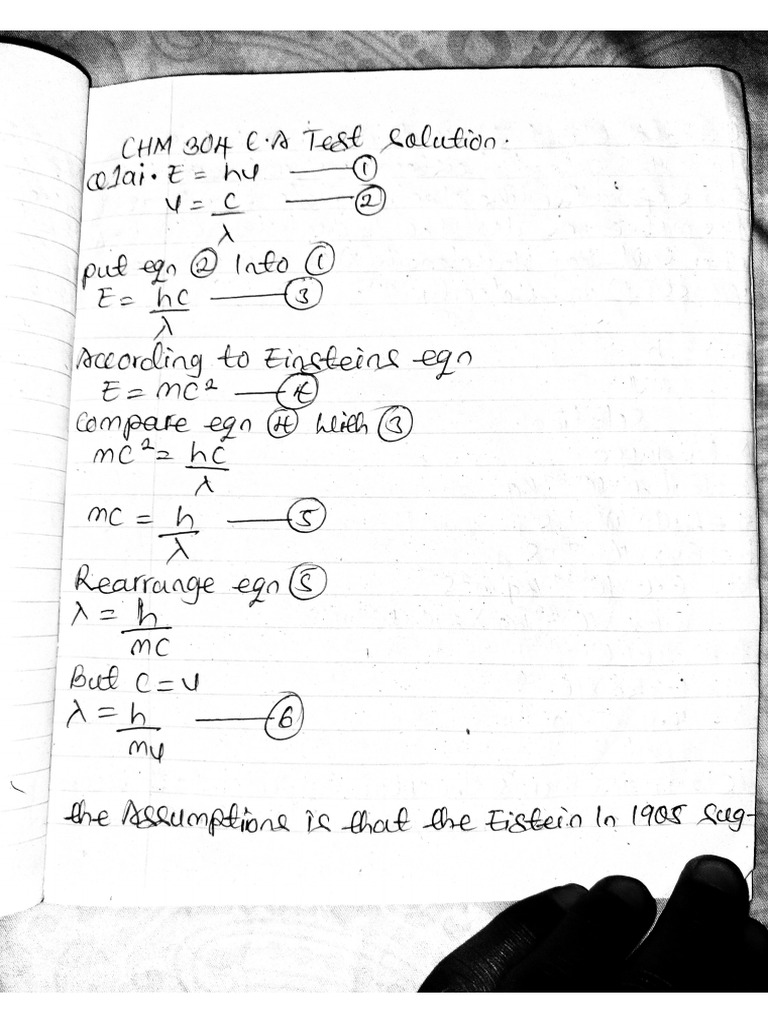 CHM 304 C.A Test Solution.
Q1ai. E = hν —— ①
ν = c/λ —— ②
put eqn ② Into ①
E = hc/λ —— ③
According to Einsteins eqn
E = mc² —— ④
Compare eqn ④ with ③
mc² = hc/λ
mc = h/λ —— ⑤
Rearrange eqn ⑤
λ = h/mc
But c = ν
λ = h/mν —— ⑥
the Assumptions is that the Eistein In 1905 sug-